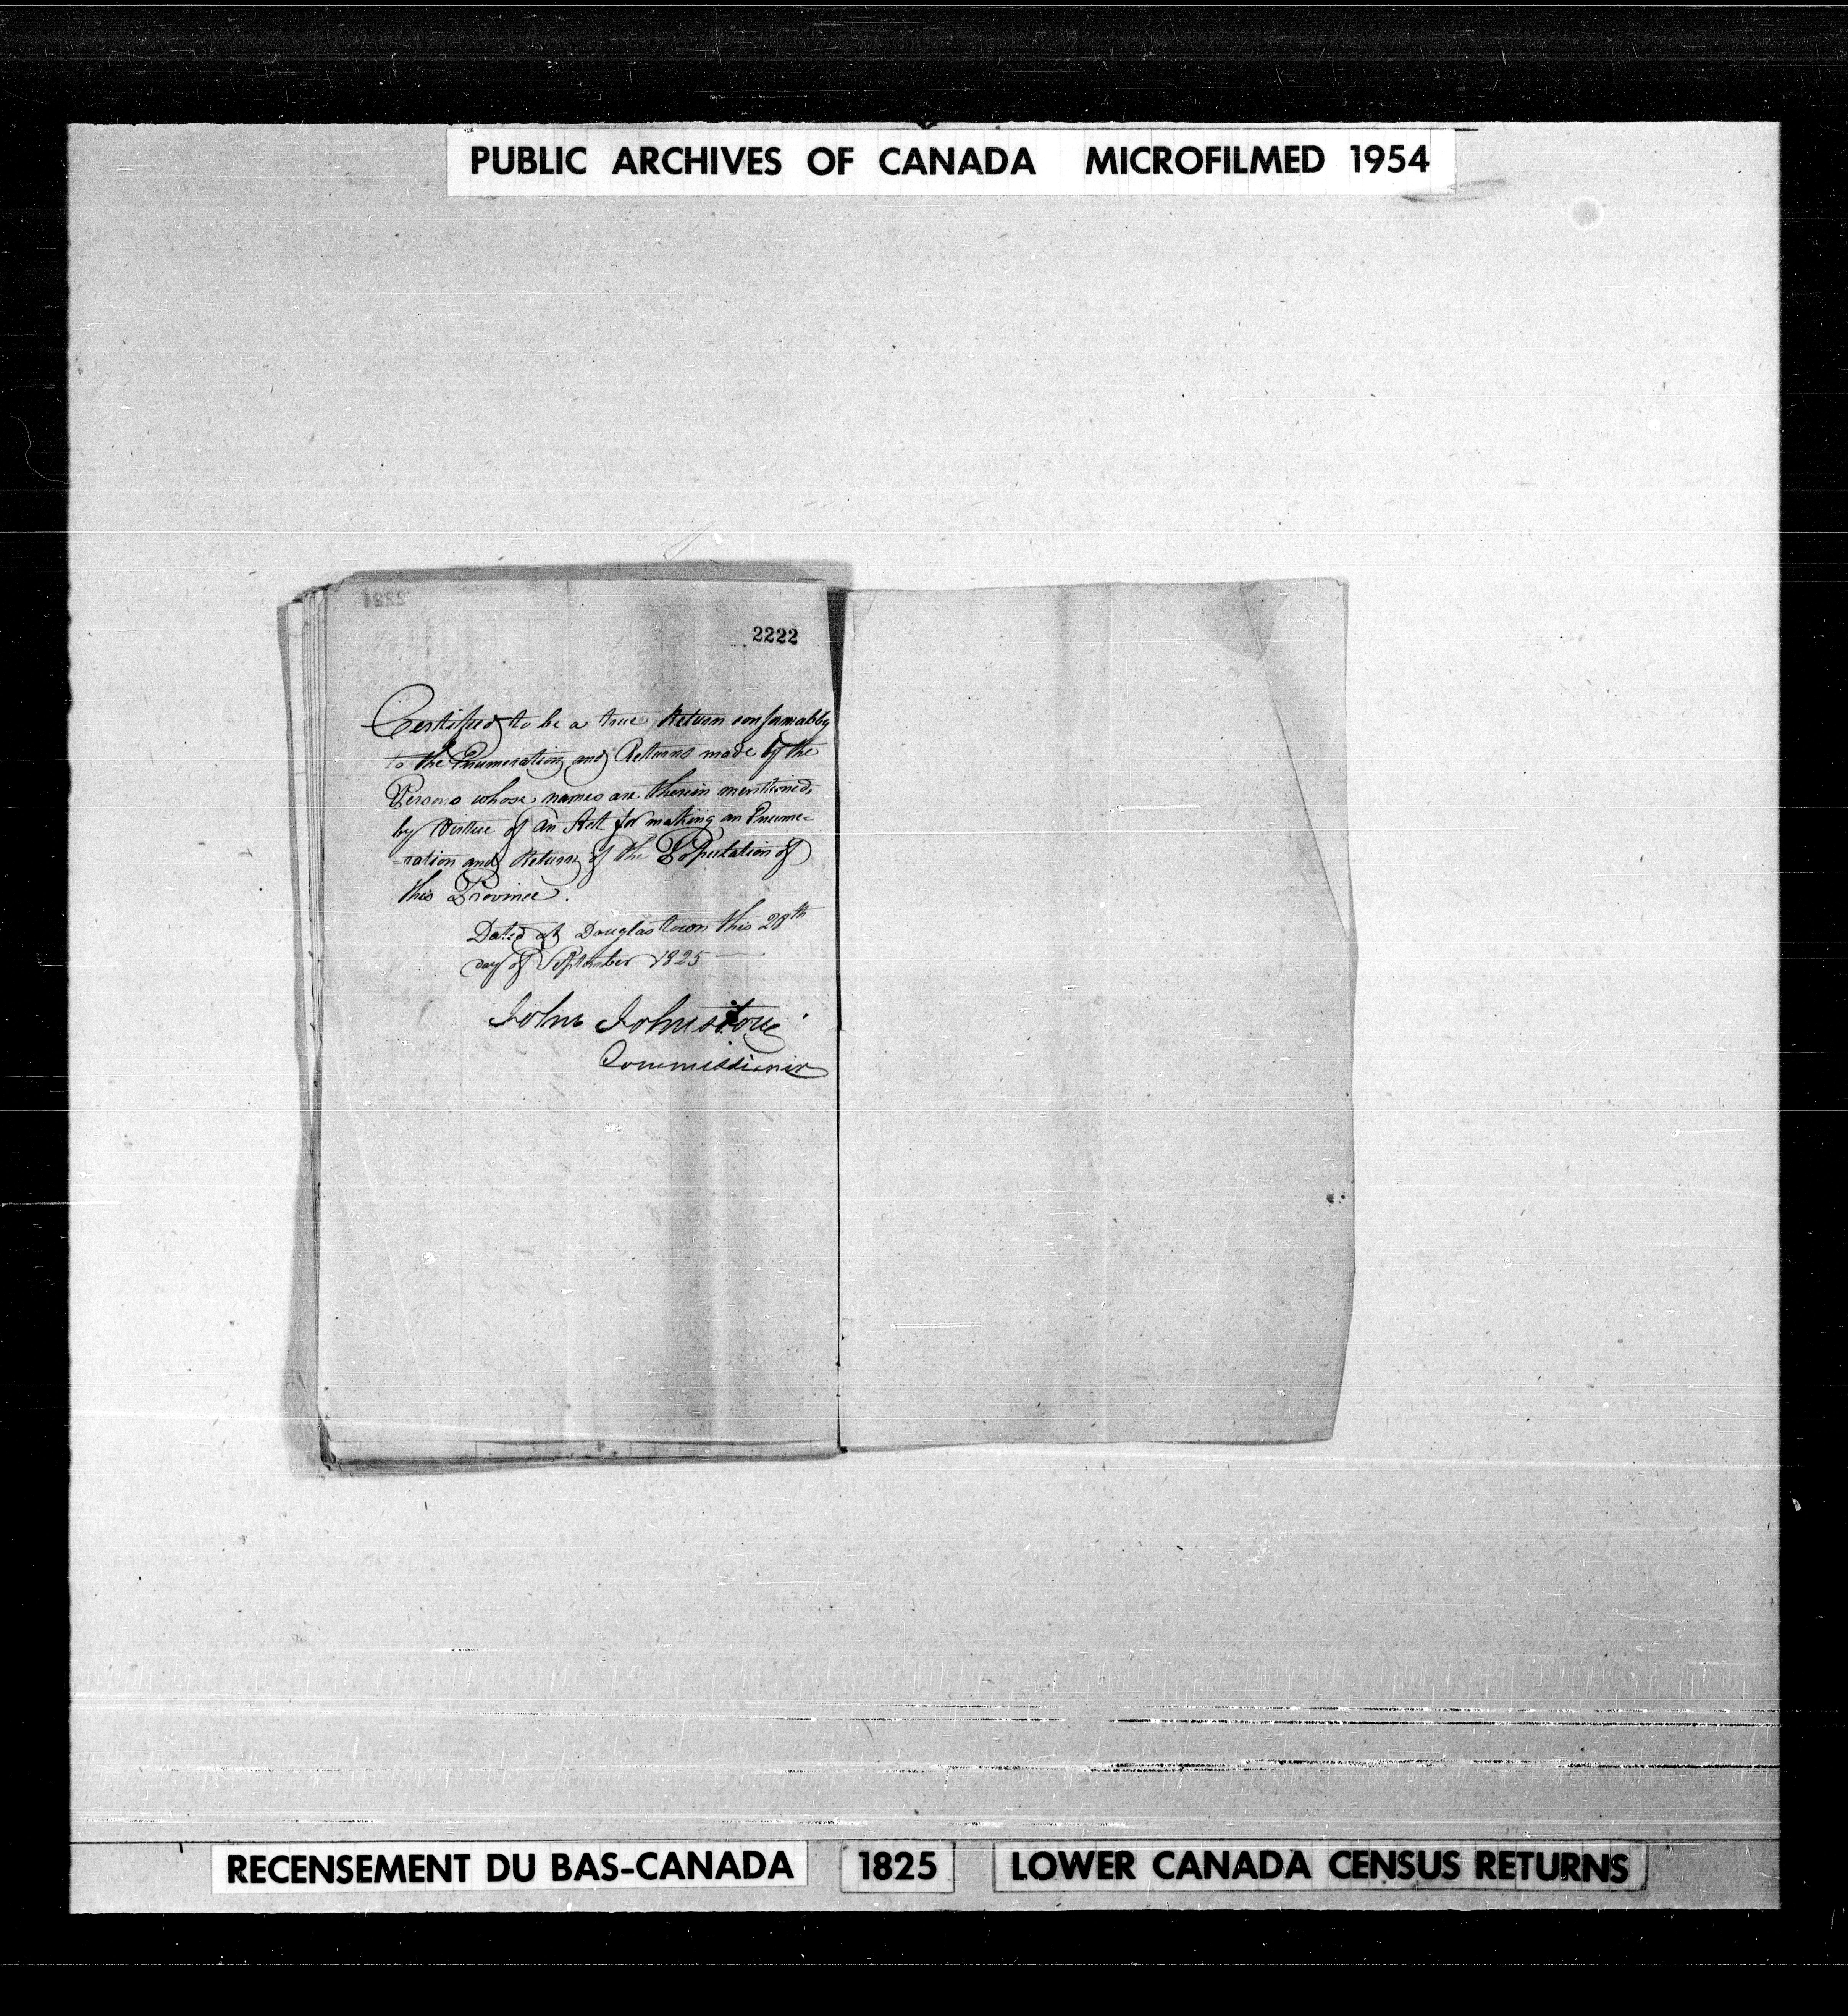 PUBLIC ARCHIVES OF CANADA MICROFILMED 1954
2221
2222
Certified to be a true Return conformably
to the Enumeration and Returns made by the
Persons whose names are therein mentioned,
by Virtue of an Act for making an Enume-
-ration and Return of the Population of
this Province.
Dated at Douglas town this 28th
day of September 1825
John Johnstone
Commissionir
RECENSEMENT DU BAS-CANADA 1825 LOWER CANADA CENSUS RETURNS